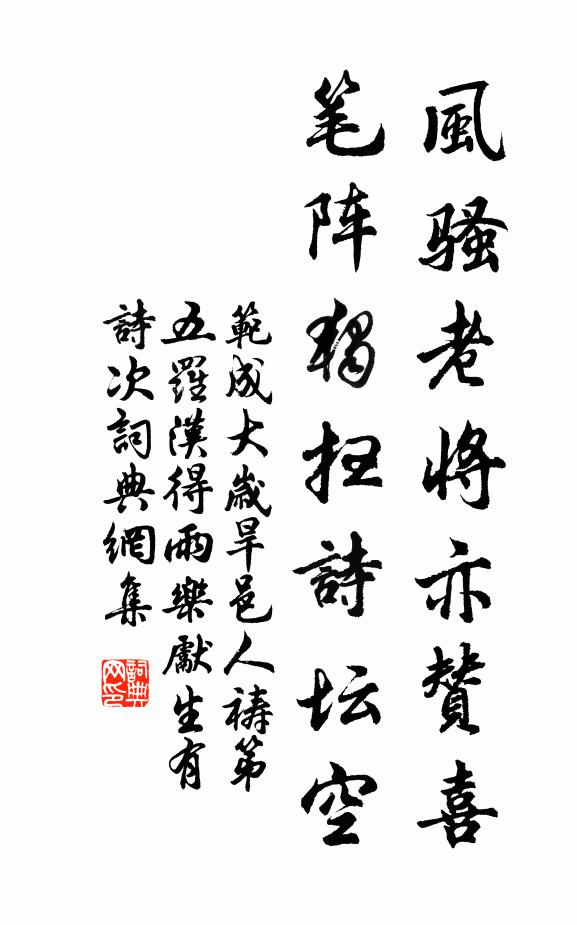 風骚老将亦赞喜
笔阵独扫詩坛空
範成大歲旱邑人祷第
五羅漢得雨樂獻生有
詩次詞典網集
詞典
网印